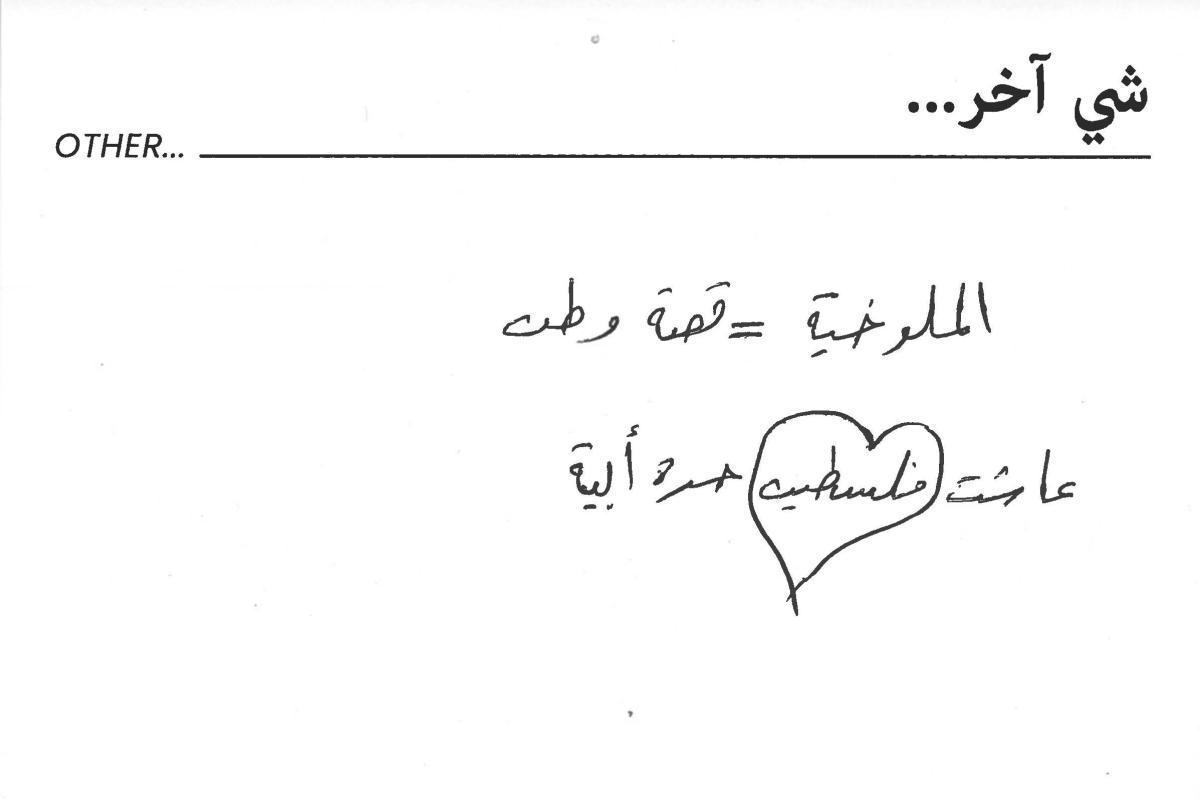 شي آخر...
OTHER...
الملوخية = قصة وطن
عاشت فلسطين حرة أبية